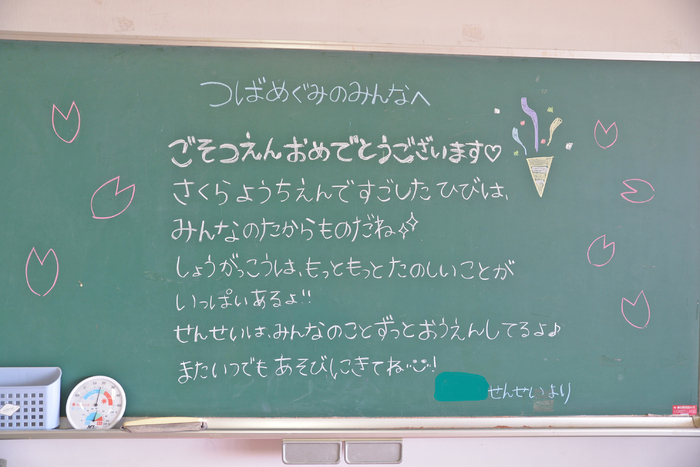 つばめぐみのみんなへ
ごそつえんおめでとうございます♡
さくらようちえんですごしたひびは、
みんなのたからものだね
しょうがっこうは、もっともっとたのしいことが
いっぱいあるよ!!
せんせいは、みんなのことずっとおうえんしてるよ♪
またいつでもあそびにきてね!
せんせいより